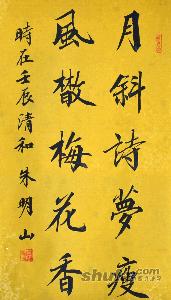 月斜詩夢瘦
風散梅花香
時在壬辰清和朱明山